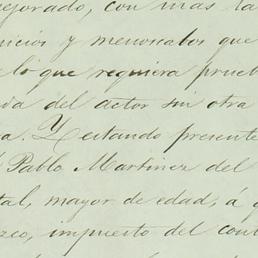 ejorado, con mas la
uicios y menoscabos que
lo que requiera prueb
da del actor sin otra
a. Y estando presente
Pablo Martinez del
tal, mayor de edad, á q
zco, impuesto del cont